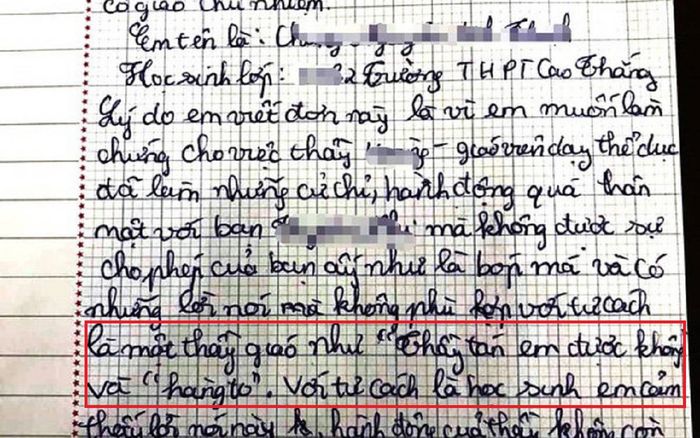 cô giáo chủ nhiệm.
Em tên là:
Học sinh lớp: 2 Trường THPT Cao Thắng
Lý do em viết đơn này là vì em muốn làm
chứng cho việc thầy - giáo viên dạy thể dục
đã làm những cử chỉ, hành động quá thân
mật với bạn mà không được sự
cho phép của bạn ấy như là bóp má và có
những lời nói mà không phù hợp với tư cách
là một thầy giáo như "Thầy tán em được không
và "hàng to". Với tư cách là học sinh em cảm
thấy lời nói này hành động của thầy không còn